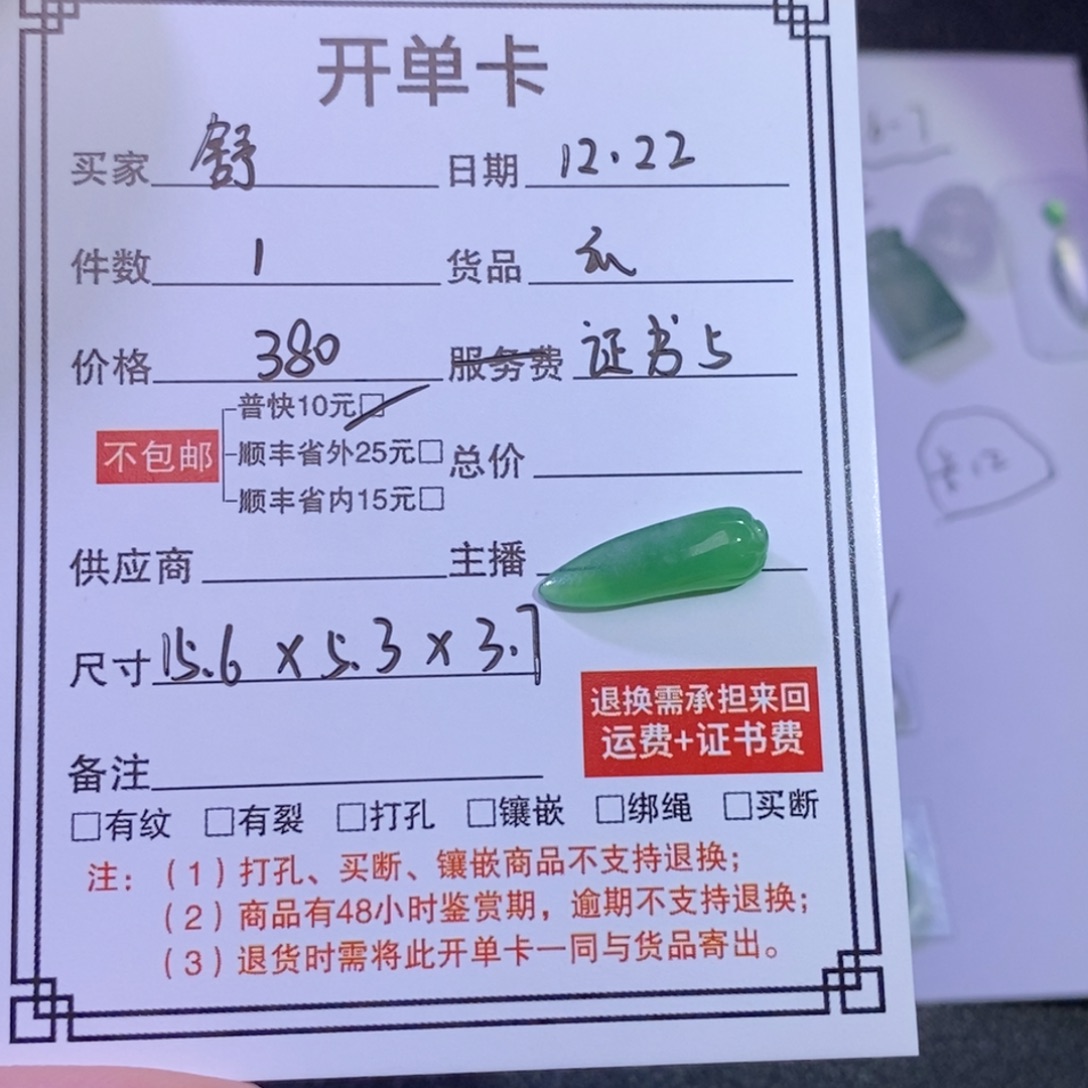 开单卡
买家 舒 日期 12.22
件数 1 货品 瓜
价格 380 服务费 证书5
普快10元□
不包邮 顺丰省外25元□ 总价
顺丰省内15元□
供应商 主播
尺寸 15.6 × 5.3 × 3.7
退换需承担来回
运费+证书费
备注
□有纹 □有裂 □打孔 □镶嵌 □绑绳 □买断
注：（1）打孔、买断、镶嵌商品不支持退换；
（2）商品有48小时鉴赏期，逾期不支持退换；
（3）退货时需将此开单卡一同与货品寄出。